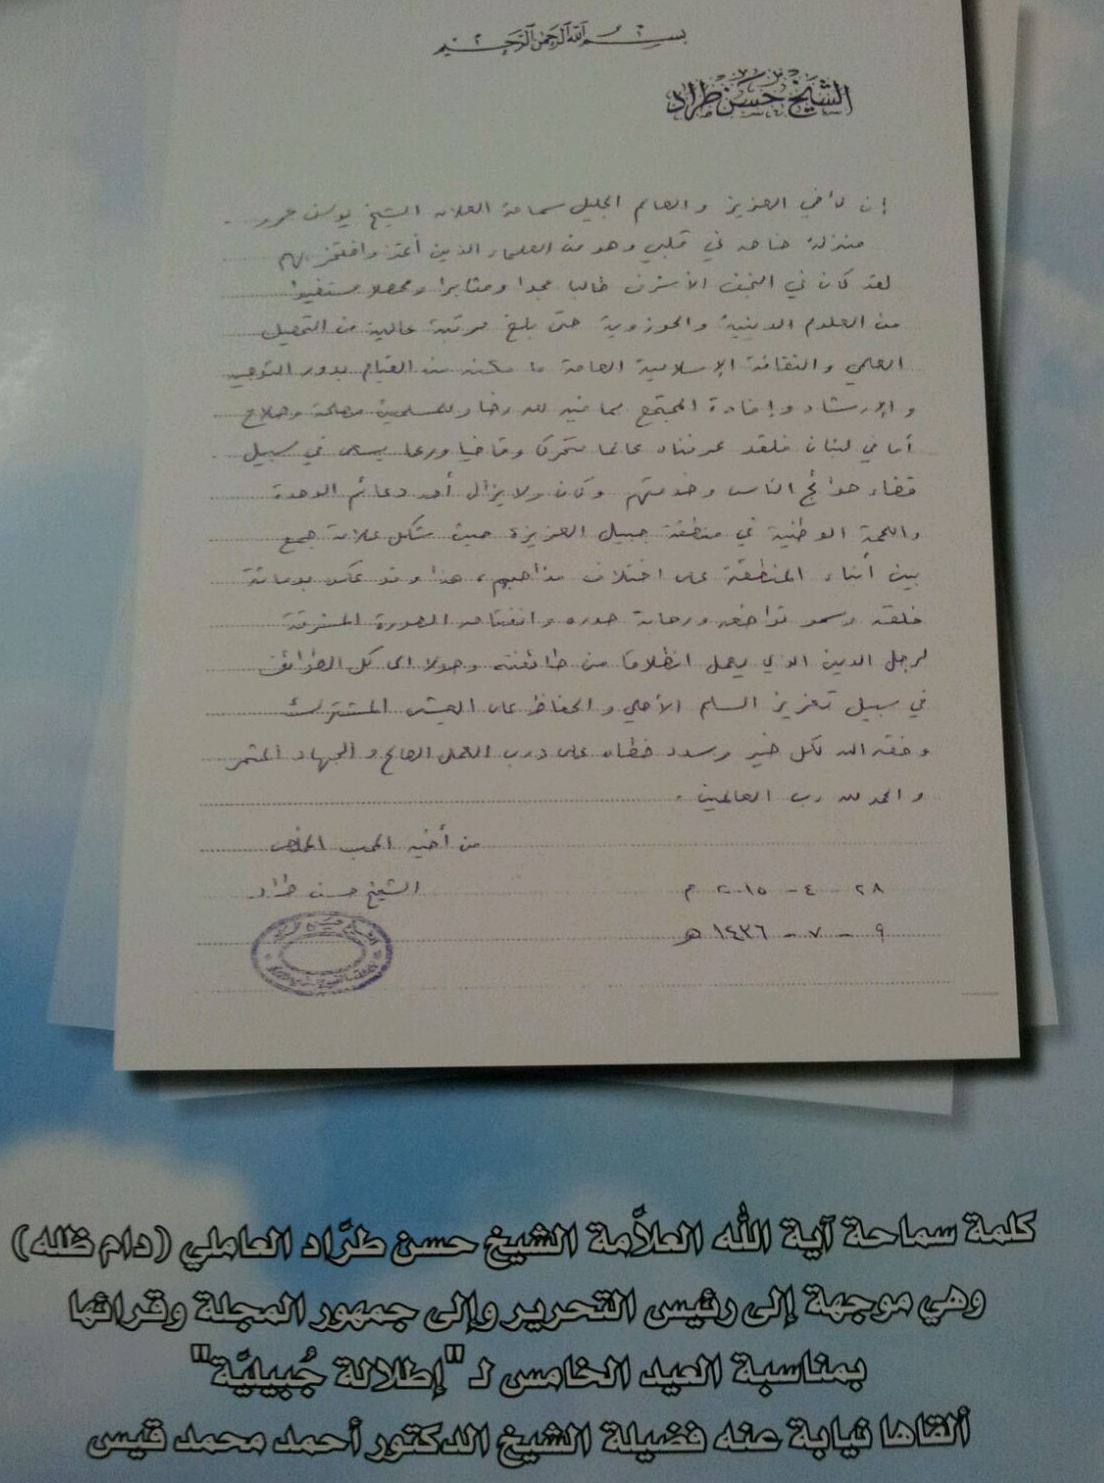 بسم الله الرحمن الرحيم
الشيخ حسن طراد
إن لأخي العزيز والعالم الجليل سماحة العلامة الشيخ يوسف عمرو
منزلة خاصة في قلبي وهو من العلماء الذين أعتز وافتخر بهم
لقد كان في النجف الأشرف طالبا مجدا ومثابرا ومحصلا مستفيدا
من العلوم الدينية والحوزوية حتى بلغ مرتبة عالية من التحصيل
العلمي والثقافة الإسلامية العامة ما مكنه من القيام بدور التوجيه
والإرشاد وإفادة المجتمع بما فيه لله رضا وللمسلمين مصلحة وصلاح
أما في لبنان فلقد عرفناه عالما متحركا وقاضيا ورعا يسعى في سبيل
قضاء حوائج الناس وخدمتهم وكان ولا يزال أحد دعائم الوحدة
واللحمة الوطنية في منطقة جبيل العزيزة حيث شكل علامة جمع
بين أبناء المنطقة على اختلاف مذاهبهم، هذا وقد عكس بدماثة
خلقه وسمو تواضعه ورحابة صدره وانفتاحه الصورة المشرقة
لرجل الدين الذي يعمل انطلاقا من طائفته وصولا الى كل الطوائف
في سبيل تعزيز السلم الأهلي والحفاظ على العيش المشترك
وفقه الله لكل خير وسدد خطاه على درب العمل الصالح والجهاد المثمر
والحمد لله رب العالمين .
من أخيه المحب المخلص
الشيخ حسن طراد
٢٨ - ٤ - ٢٠١٥ م
٩ - ٧ - ١٤٣٦ هـ
كلمة سماحة آية الله العلاّمة الشيخ حسن طرّاد العاملي (دام ظله)
وهي موجهة إلى رئيس التحرير وإلى جمهور المجلة وقرائها
بمناسبة العيد الخامس لـ "إطلالة جُبيليّة"
ألقاها نيابة عنه فضيلة الشيخ الدكتور أحمد محمد قيس